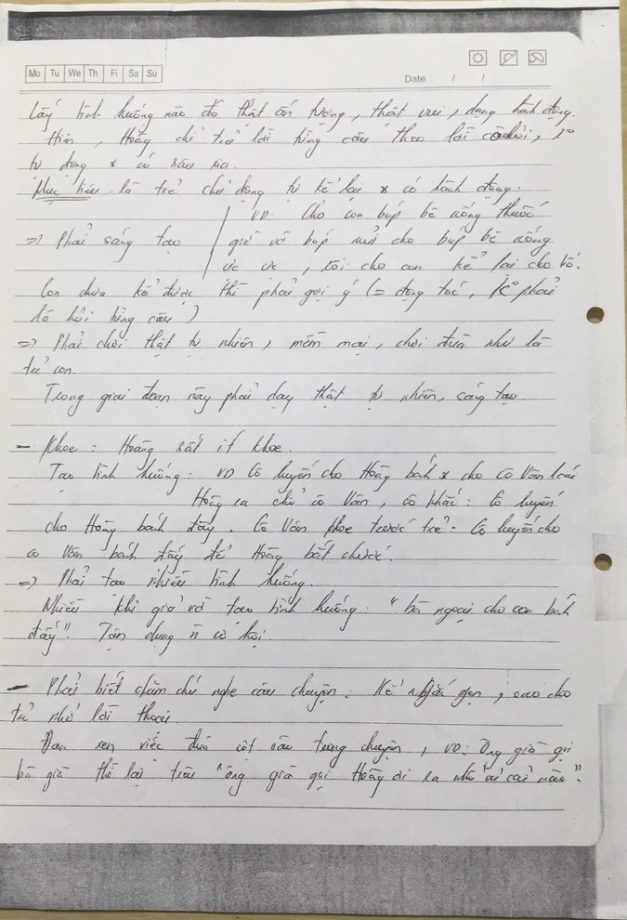 Mo Tu We Th Fi Sa Su
Date / /
Lấy tình huống nào đó thật ấn tượng, thật vui, dạng hành động.
Hiện, Hoàng chỉ trả lời từng câu theo lời câu hỏi,
tự động * có sâu xa.
Mục tiêu là trẻ chủ động tự kể lại * có hành động.
VD: Cho con búp bê uống thuốc
=> Phải sáng tạo giả vờ bóp mũi cho búp bê uống.
ực ực, rồi cho con kể lại cho bố.
Con chưa kể được thì phải gợi ý (= động tác, phải
là hỏi từng câu)
=> Phải chơi thật tự nhiên, mềm mại, chơi đùa như là
trẻ con.
Trong giai đoạn này phải dạy thật tự nhiên, sáng tạo.
- Khoe: Hoàng rất ít khoe.
Tạo tình huống: VD Cô Luyến cho Hoàng bánh * cho cô Vân
Hoàng ra chỗ cô Vân, cô nhắc: Cô Luyến
cho Hoàng bánh đấy. Cô Vân khoe trước trẻ - Cô Luyến cho
cô Vân bánh đấy để Hoàng bắt chước.
=> Phải tạo nhiều tình huống.
Nhiều khi giả vờ tạo tình huống: "bà ngoại cho con bánh
đấy". Tận dụng n cơ hội
- Phải biết chăm chú nghe câu chuyện. Kể ngắn gọn, sao cho
trẻ nhớ lời thoại
Đan xen việc đùa cợt vào trong chuyện, VD: Ông già gọi
bà già thì lại trêu "ông già gọi Hoàng đi ra nhổ củ cải nào".